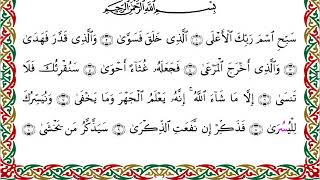 بِسْمِ اللَّهِ الرَّحْمَٰنِ الرَّحِيمِ
سَبِّحِ اسْمَ رَبِّكَ الْأَعْلَى ۝ الَّذِي خَلَقَ فَسَوَّىٰ ۝ وَالَّذِي قَدَّرَ فَهَدَىٰ
۝ وَالَّذِي أَخْرَجَ الْمَرْعَىٰ ۝ فَجَعَلَهُ غُثَاءً أَحْوَىٰ ۝ سَنُقْرِئُكَ فَلَا
تَنسَىٰ ۝ إِلَّا مَا شَاءَ اللَّهُ ۚ إِنَّهُ يَعْلَمُ الْجَهْرَ وَمَا يَخْفَىٰ ۝ وَنُيَسِّرُكَ
لِلْيُسْرَىٰ ۝ فَذَكِّرْ إِن نَّفَعَتِ الذِّكْرَىٰ ۝ سَيَذَّكَّرُ مَن يَخْشَىٰ ۝